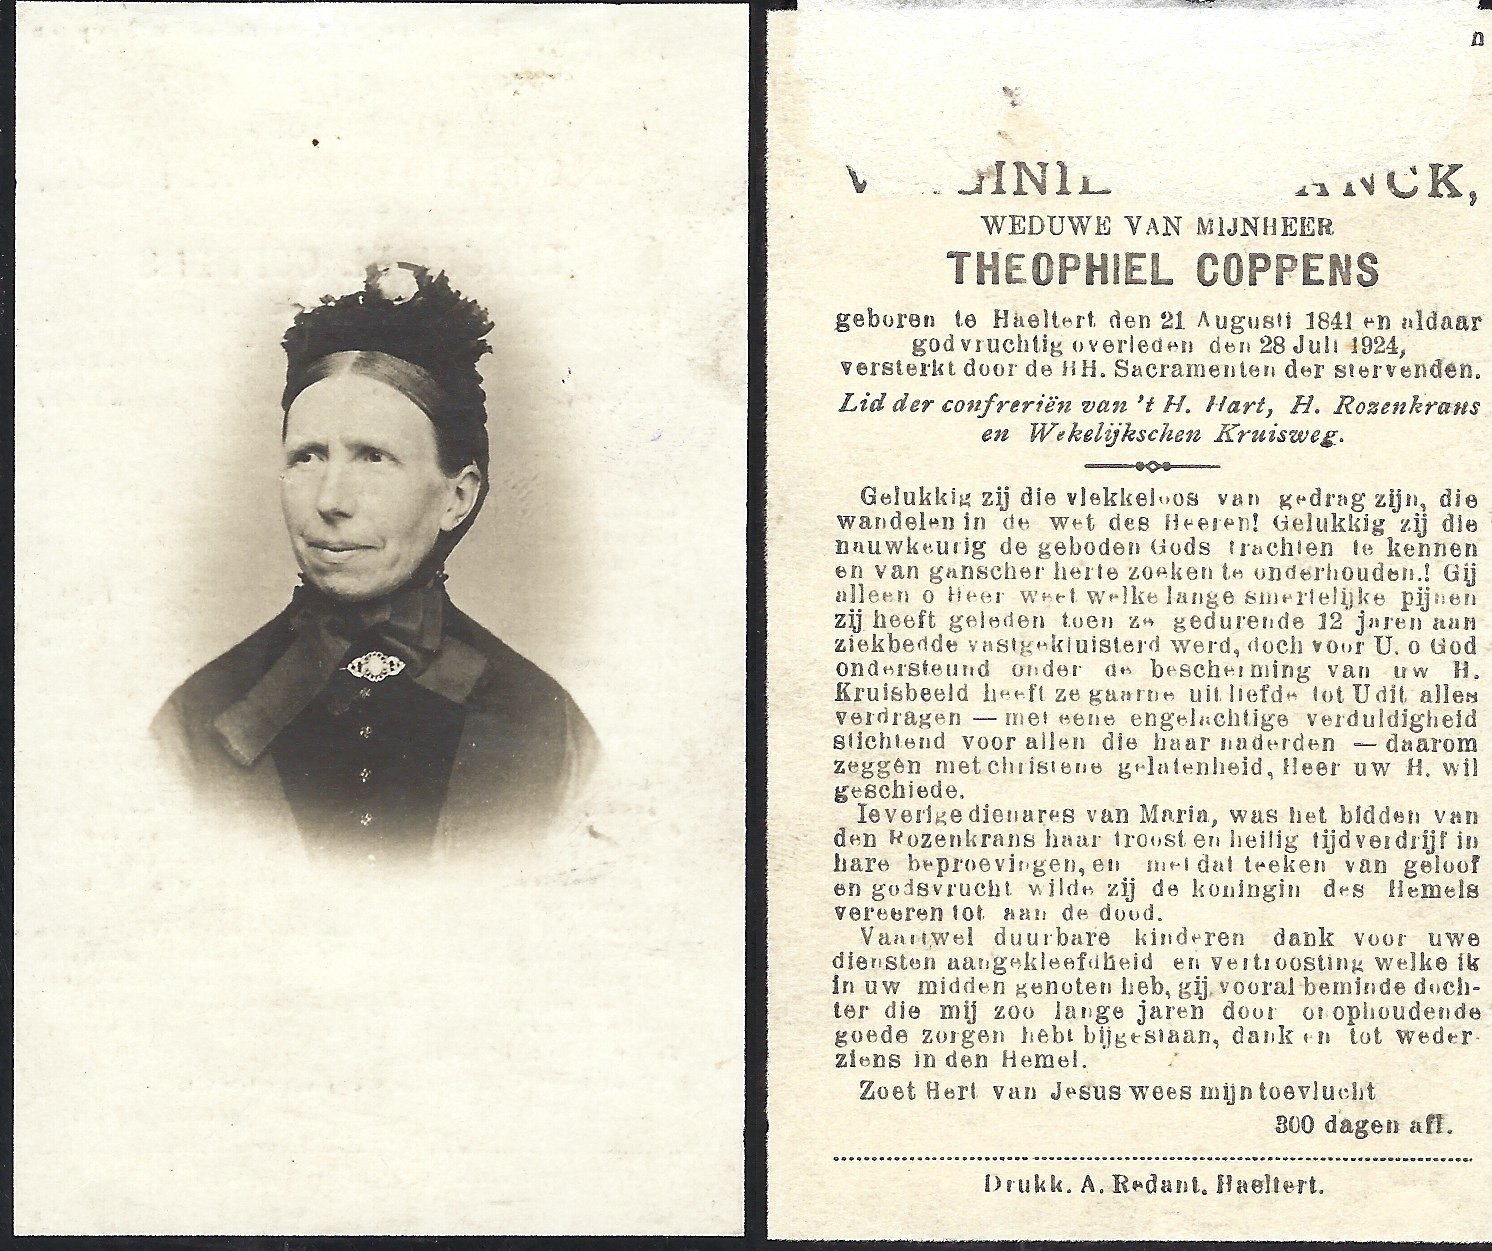 WEDUWE VAN MIJNHEER
THEOPHIEL COPPENS
geboren te Haeltert den 21 Augusti 1841 en aldaar
godvruchtig overleden den 28 Juli 1924,
versterkt door de HH. Sacramenten der stervenden.
Lid der confreriën van 't H. Hart, H. Rozenkrans
en Wekelijkschen Kruisweg.
Gelukkig zij die vlekkeloos van gedrag zijn, die
wandelen in de wet des Heeren! Gelukkig zij die
nauwkeurig de geboden Gods trachten te kennen
en van ganscher herte zoeken te onderhouden.! Gij
alleen o Heer weet welke lange smertelijke pijnen
zij heeft geleden toen ze gedurende 12 jaren aan
ziekbedde vastgekluisterd werd, doch voor U. o God
ondersteund onder de bescherming van uw H.
Kruisbeeld heeft ze gaarne uit liefde tot U dit alles
verdragen — met eene engelachtige verduldigheid
stichtend voor allen die haar naderden — daarom
zeggen met christene gelatenheid, Heer uw H. wil
geschiede.
Ieverige dienares van Maria, was het bidden van
den Rozenkrans haar troost en heilig tijdverdrijf in
hare beproevingen, en met dat teeken van geloof
en godsvrucht wilde zij de koningin des Hemels
vereeren tot aan de dood.
Vaartwel duurbare kinderen dank voor uwe
diensten aangekleefdheid en vertroosting welke ik
in uw midden genoten heb, gij vooral beminde doch-
ter die mij zoo lange jaren door onophoudende
goede zorgen hebt bijgestaan, dank en tot weder-
ziens in den Hemel.
Zoet Hert van Jesus wees mijn toevlucht
300 dagen afl.
Drukk. A. Redant. Haeltert.